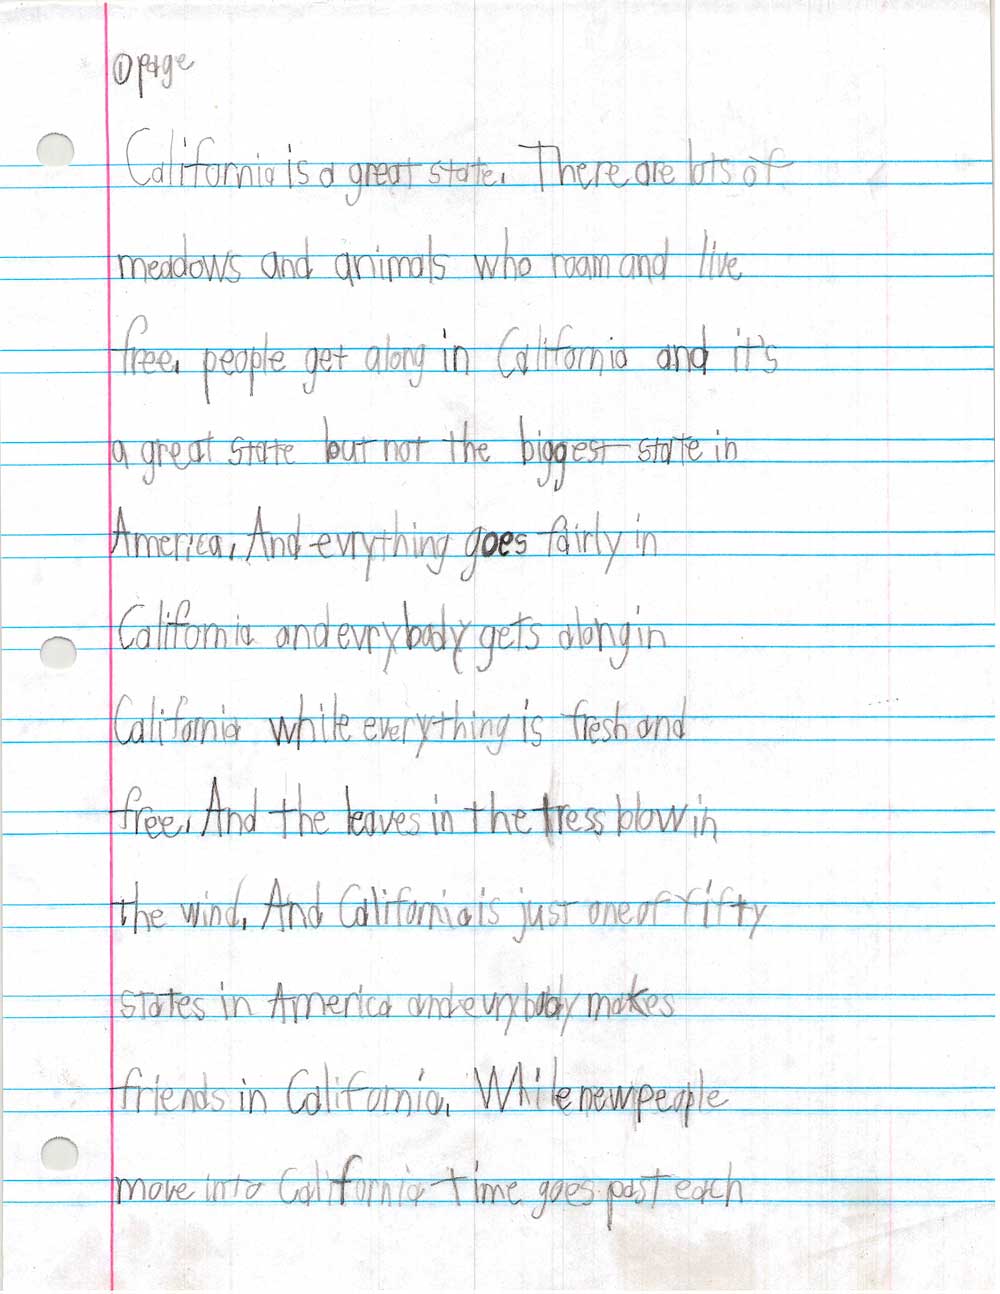 ① page
California is a great state. There are lots of
meadows and animals who roam and live
free. people get along in California and it's
a great state but not the biggest state in
America. And evrything goes fairly in
California and evrybody gets along in
California while everything is fresh and
free. And the leaves in the tress blow in
the wind. And California is just one of fifty
states in America and evrybody makes
friends in California. While new people
move into California time goes past each